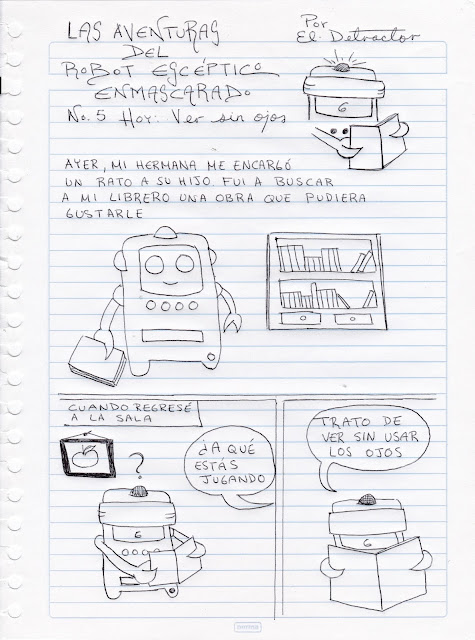 LAS AVENTURAS
DEL
ROBOT ESCÉPTICO
ENMASCARADO
Por
El Detractor
No. 5 Hoy: Ver sin ojos
6
AYER, MI HERMANA ME ENCARGÓ
UN RATO A SU HIJO. FUI A BUSCAR
A MI LIBRERO UNA OBRA QUE PUDIERA
GUSTARLE
CUANDO REGRESÉ
A LA SALA
?
¿A QUÉ
ESTÁS
JUGANDO
6
TRATO DE
VER SIN USAR
LOS OJOS
6